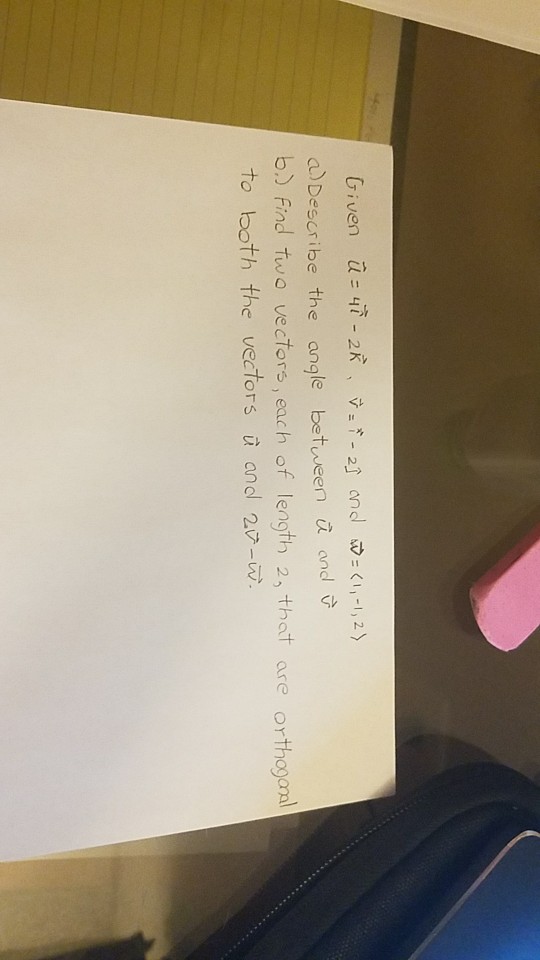 Given u⃗ = 4i⃗ - 2k⃗, v⃗ = i⃗ - 2j⃗ and w⃗ = ⟨1,-1,2⟩
a) Describe the angle between u⃗ and v⃗
b.) find two vectors, each of length 2, that are orthogonal
to both the vectors u⃗ and 2v⃗-w⃗.